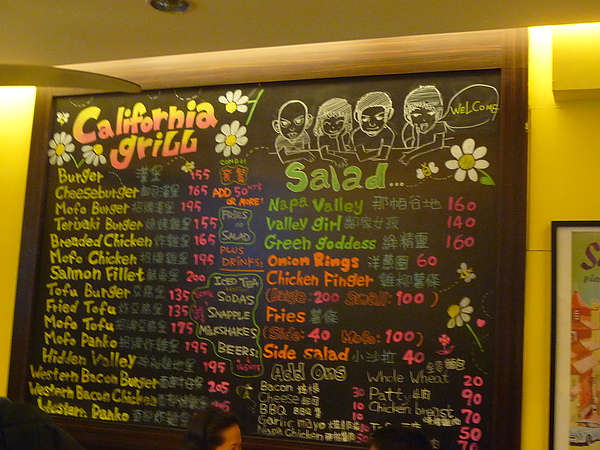 California
grill
Burger 漢堡 155
Cheeseburger 165
Mofo Burger 招牌漢堡 195
Teriyaki Burger 155
Breaded Chicken 炸雞堡 165
Mofo Chicken 招牌雞堡 195
Salmon Fillet 200
Tofu Burger 豆腐堡 135
Fried Tofu 炸豆腐堡 135
Mofo Tofu 175
Mofo Panko 195
Hidden Valley 195
Western Bacon Burger 205
Western Bacon Chicken
Western Panko
COMBO!
套餐
ADD 50NTS
OR MORE!
FRIES
OR
SALAD
PLUS
DRINKS!
ICED TEA
SODAS
SNAPPLE
MILKSHAKES
BEERS!
WELCOME
Salad...
Napa Valley 那帕谷地 160
Valley girl 谷家女孩 140
Green goddess 綠精靈 160
Onion Rings 洋蔥圈 60
Chicken Finger 雞柳薯條
(Large: 200 Small: 100)
Fries 薯條
(Side: 40 Mofo: 100)
Side salad 小沙拉 40
Add Ons
Bacon 30
Cheese 10
BBQ 10
Garlic mayo
Napa Chicken
Whole Wheat 全麥 20
Patty 肉 90
Chicken breast 70
50
70